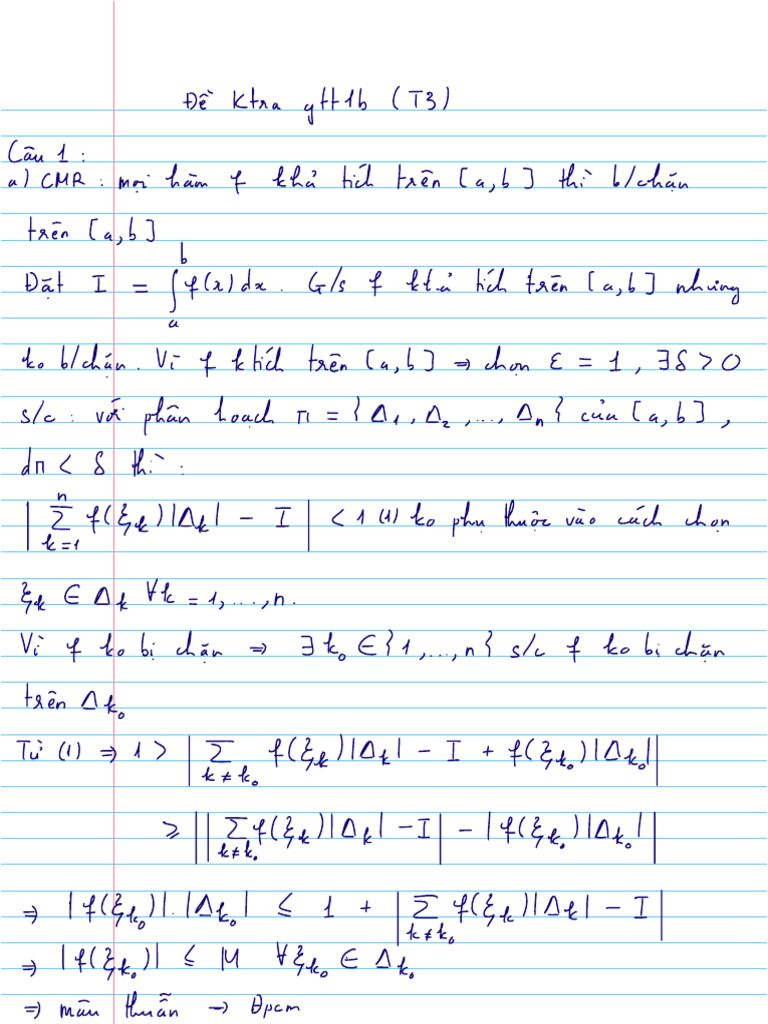 Đề Ktra gtt1b (T3)
Câu 1 :
a) CMR : mọi hàm f khả tích trên [a,b] thì b/chặn
trên [a,b]
Đặt I = ∫_a^b f(x)dx. G/s f khả tích trên [a,b] nhưng
ko b/chặn. Vì f ktích trên [a,b] ⇒ chọn ε = 1, ∃δ > 0
s/c : với phân hoạch π = {Δ₁, Δ₂, ..., Δₙ} của [a,b],
dπ < δ thì :
|∑_{k=1}^{n} f(ξ_k)|Δ_k| - I| < 1 (1) ko phụ thuộc vào cách chọn
ξ_k ∈ Δ_k ∀k = 1,...,n.
Vì f ko bị chặn ⇒ ∃k₀ ∈ {1,...,n} s/c f ko bị chặn
trên Δ_{k₀}
Từ (1) ⇒ 1 > |∑_{k≠k₀} f(ξ_k)|Δ_k| - I + f(ξ_{k₀})|Δ_{k₀}||
≥ ||∑_{k≠k₀} f(ξ_k)|Δ_k| - I| - |f(ξ_{k₀})|Δ_{k₀}||
⇒ |f(ξ_{k₀})|.|Δ_{k₀}| ≤ 1 + |∑_{k≠k₀} f(ξ_k)|Δ_k| - I|
⇒ |f(ξ_{k₀})| ≤ M ∀ξ_{k₀} ∈ Δ_{k₀}
⇒ mâu thuẫn → Đpcm